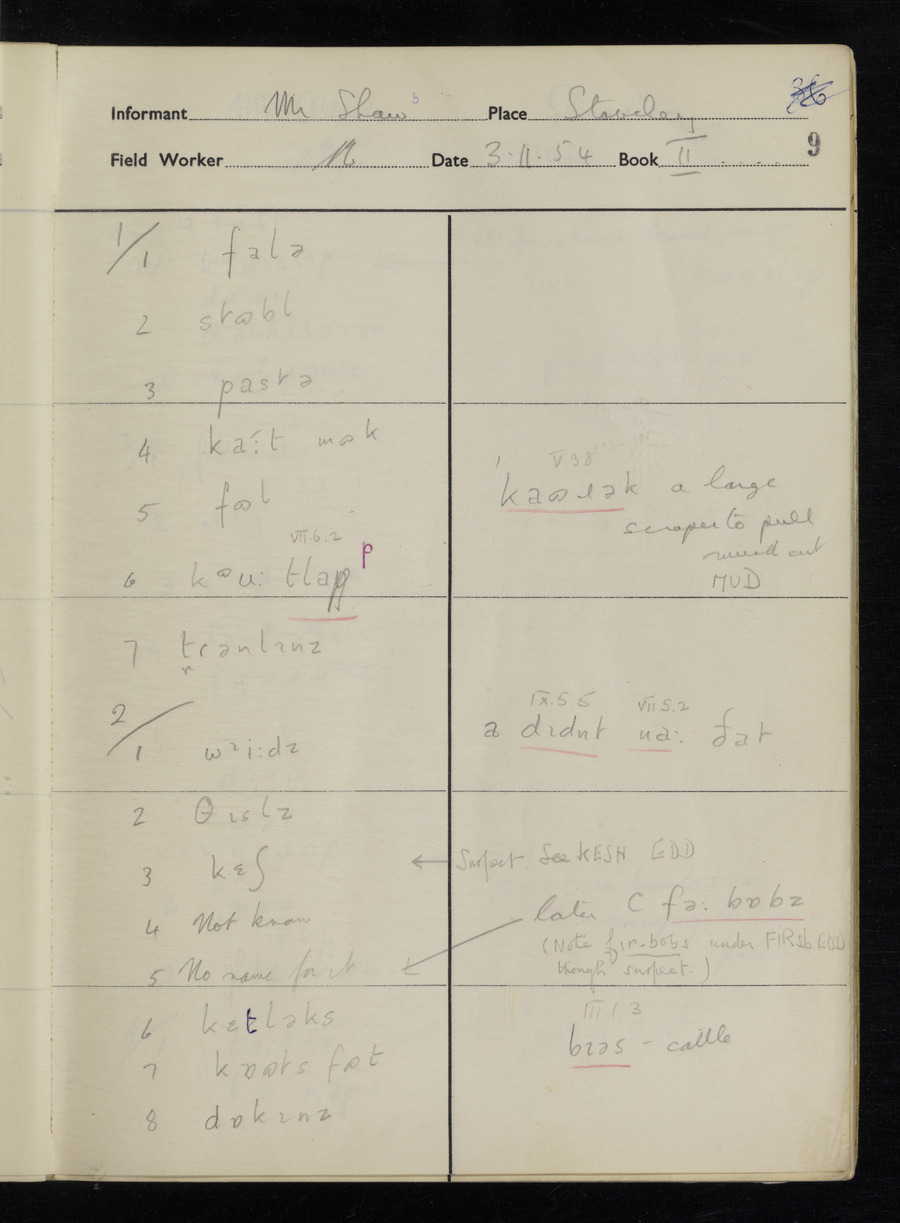 Informant Mr Shaw Place
Field Worker Date 3.11.54 Book II 9
1/1 falə
2 stɷbl
3 pastə
4 ka:t mɷk
5 fɷl
V.3.8
kaɷɹək a large
scraper to pull
mud out
MUD
VII.6.2
6 p
7
2/1 wɪi:dz
IX.5.5 VII.5.2
a dɪdnt na: ðat
2 θɪslz
3 kɛʃ ← Suspect See KESH EDD
4 Not known
later C fə: bɒbz
(Note fir-bobs under FIRsb EDD
though suspect.)
5 No name for it
6 kɛtləks
III.1.3
bɪəs - cattle
7 kɒɷts fɷt
8 dɒkɪnz